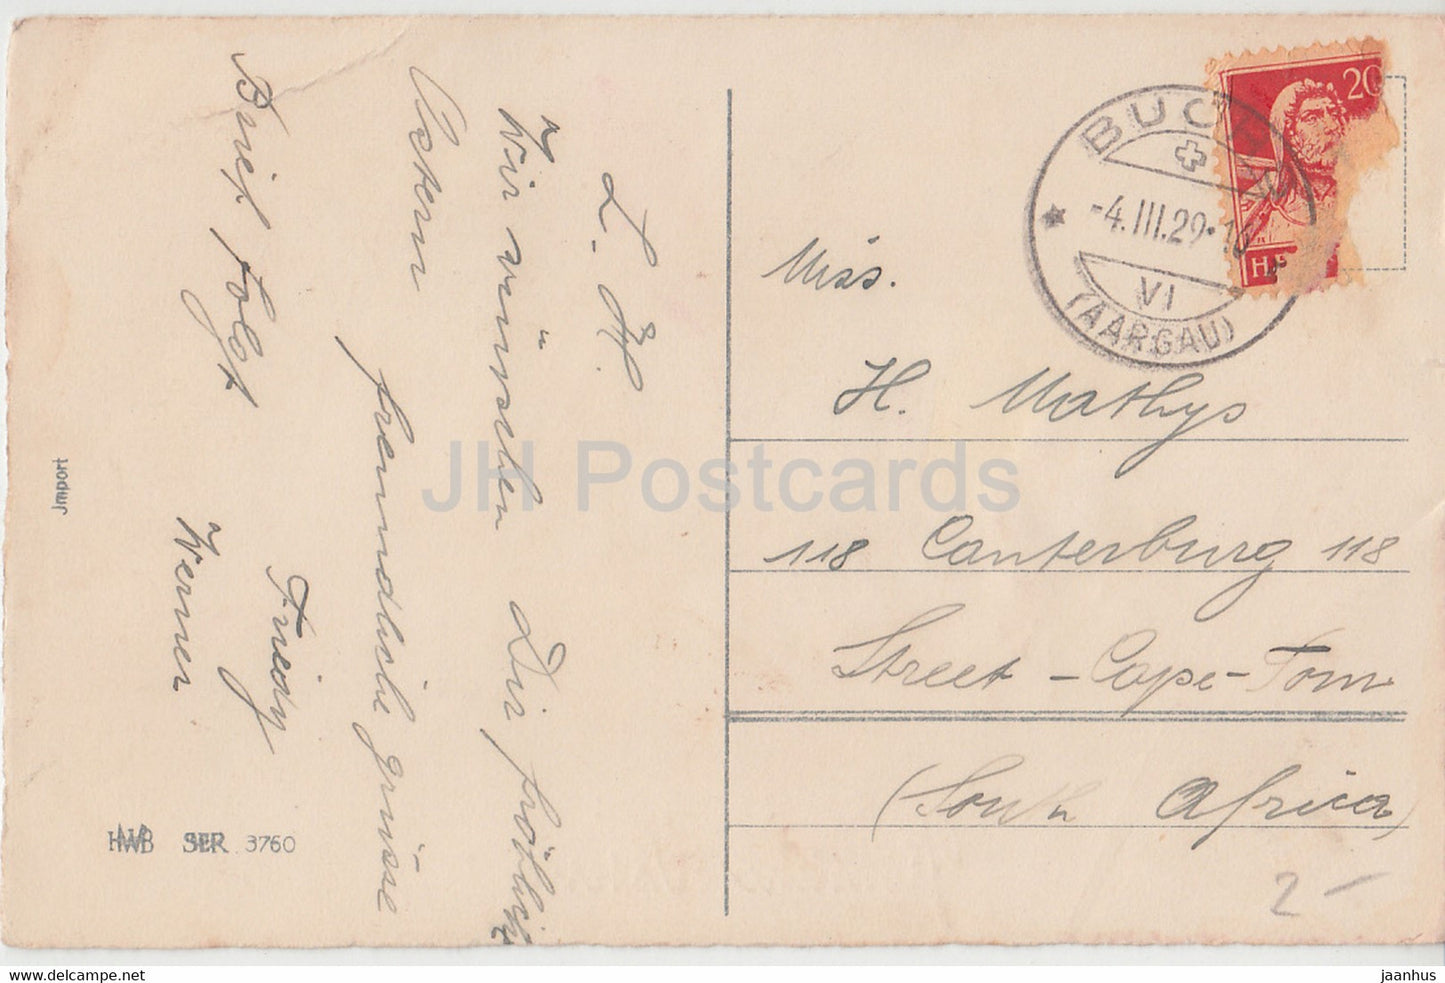 L. H.
Wir wünschen Dir fröhliche
Ostern
freundliche grüsse
Brief folgt
Friedy
Werner
Jmport
HWB SER 3760
BUCHS
-4.III.29-10
VI
(AARGAU)
20
Miss.
H. Mathys
118 Canterburg 118
Street - Cape-Town
(South Africa)
2-
JH Postcards
https://delcampe.net
jaanhus